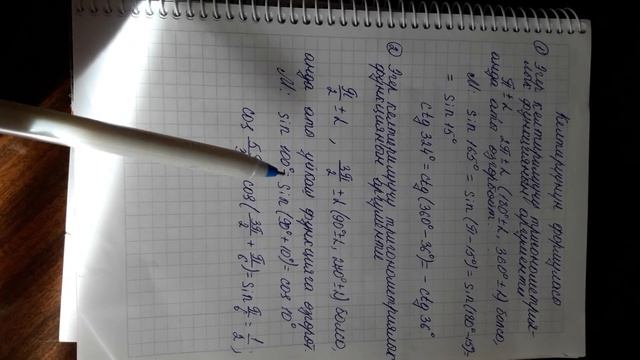 Келтирүүнүн формуласы
① Эгер келтирилүүчү тригонометрия-
лык функциянын аргументи
π ± α, 2π ± α (180° ± α, 360° ± α) болсо,
анда аты өзгөрбөйт.
М: sin 165° = sin (π - 15°) = sin(180° - 15°) =
= sin 15°
ctg 324° = ctg (360° - 36°) = - ctg 36°
② Эгер келтирилүүчү тригонометриялык
функциянын аргументи
π/2 ± α, 3π/2 ± α (90° ± α, 270° ± α) болсо,
анда аты функцияга
М: sin 100° = sin (90° + 10°) = cos 10°
cos cos (3π/2 + π/6) = sin π/6 = 1/2;